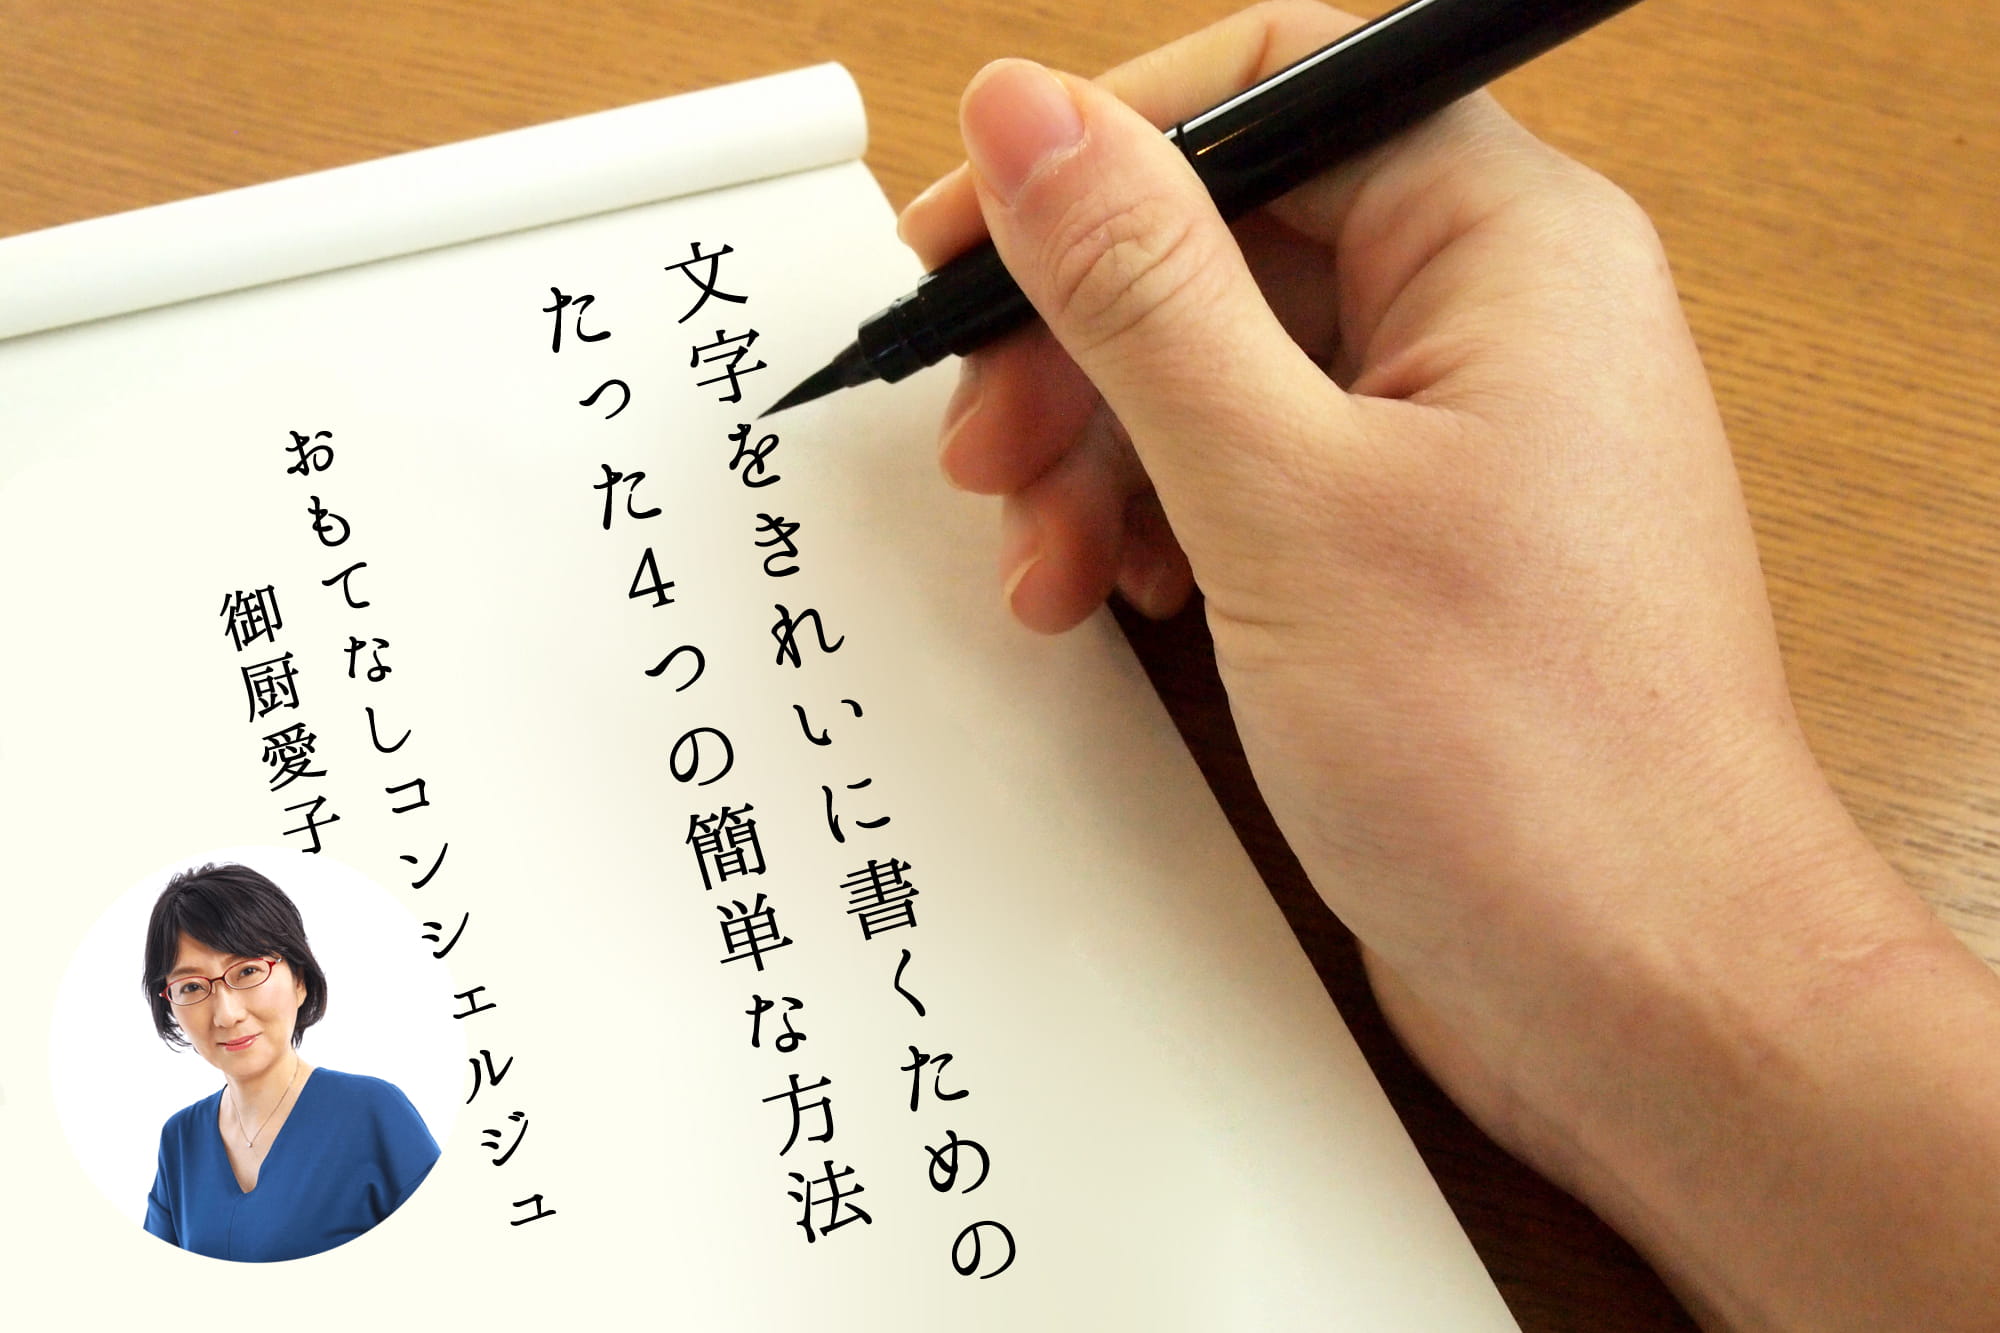 文字をきれいに書くための
たった4つの簡単な方法
おもてなしコンシェルジュ
御厨愛子